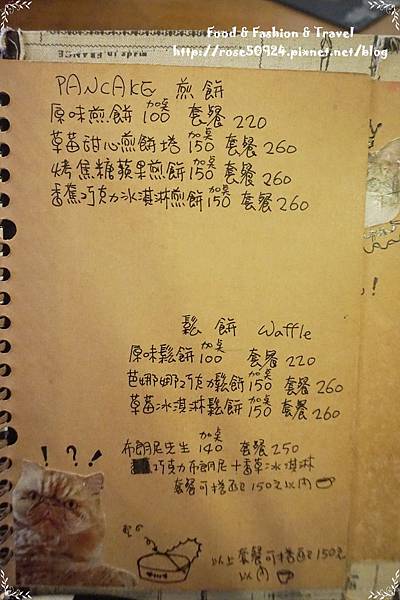 Food & Fashion & Travel
http://rose50924.pixnet.net/blog
PANCAKE 煎餅
原味煎餅 加點 100 套餐 220
草莓甜心煎餅塔 加點 150 套餐 260
烤焦糖蘋果煎餅 加點 150 套餐 260
香蕉巧克力冰淇淋煎餅 加點 150 套餐 260
鬆餅 Waffle
原味鬆餅 加點 100 套餐 220
芭娜娜巧克力鬆餅 加點 150 套餐 260
草莓冰淇淋鬆餅 加點 150 套餐 260
布朗尼先生 加點 140 套餐 250
巧克力布朗尼+香草冰淇淋
套餐可搭配150元以內
! ? ! !
以上套餐可搭配150元
以內